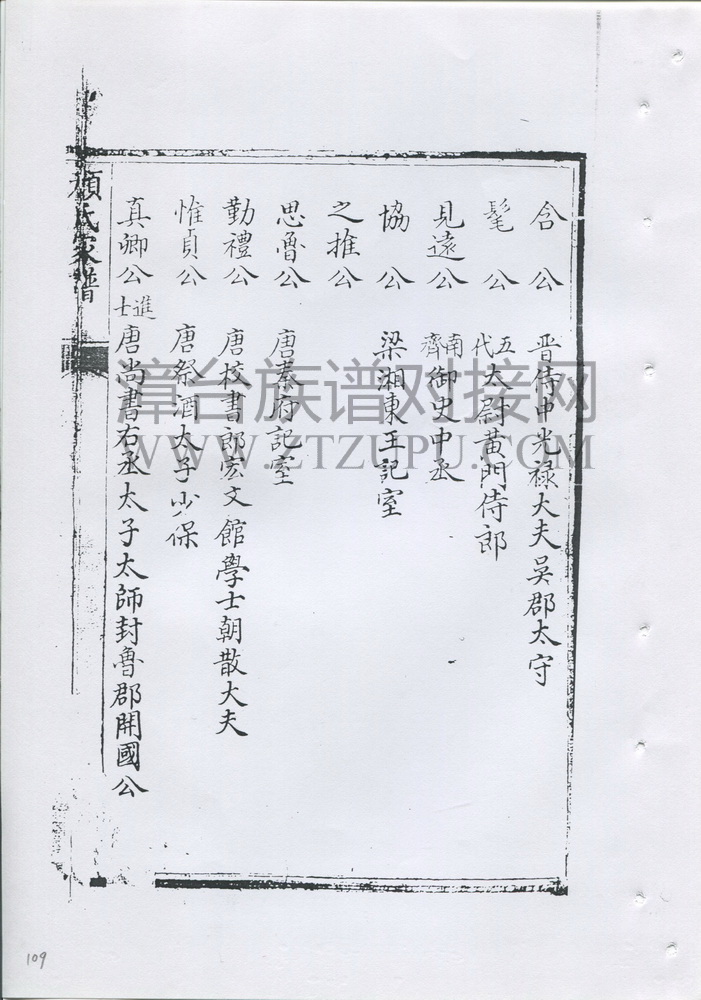 含公 晋侍中光禄大夫吳郡太守
髦公 五代太尉黃門侍郎
見遠公 南齊御史中丞
協公 梁湘東王記室
之推公
思魯公 唐秦府記室
勤禮公 唐校書郎宏文館學士朝散大夫
惟貞公 唐祭酒太子少保
真卿公 進士唐尚書右丞太子太師封魯郡開國公
顏氏家譜
漳台族谱对接网
WWW.ZTZUPU.COM
109